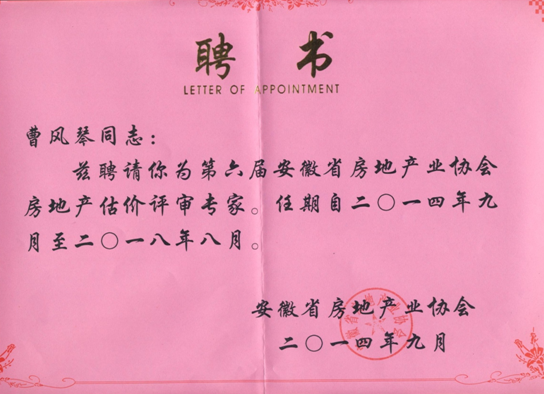 聘书
LETTER OF APPOINTMENT
曹风琴同志：
兹聘请你为第六届安徽省房地产业协会
房地产估价评审专家。任期自二〇一四年九
月至二〇一八年八月。
安徽省房地产业协会
二〇一四年九月